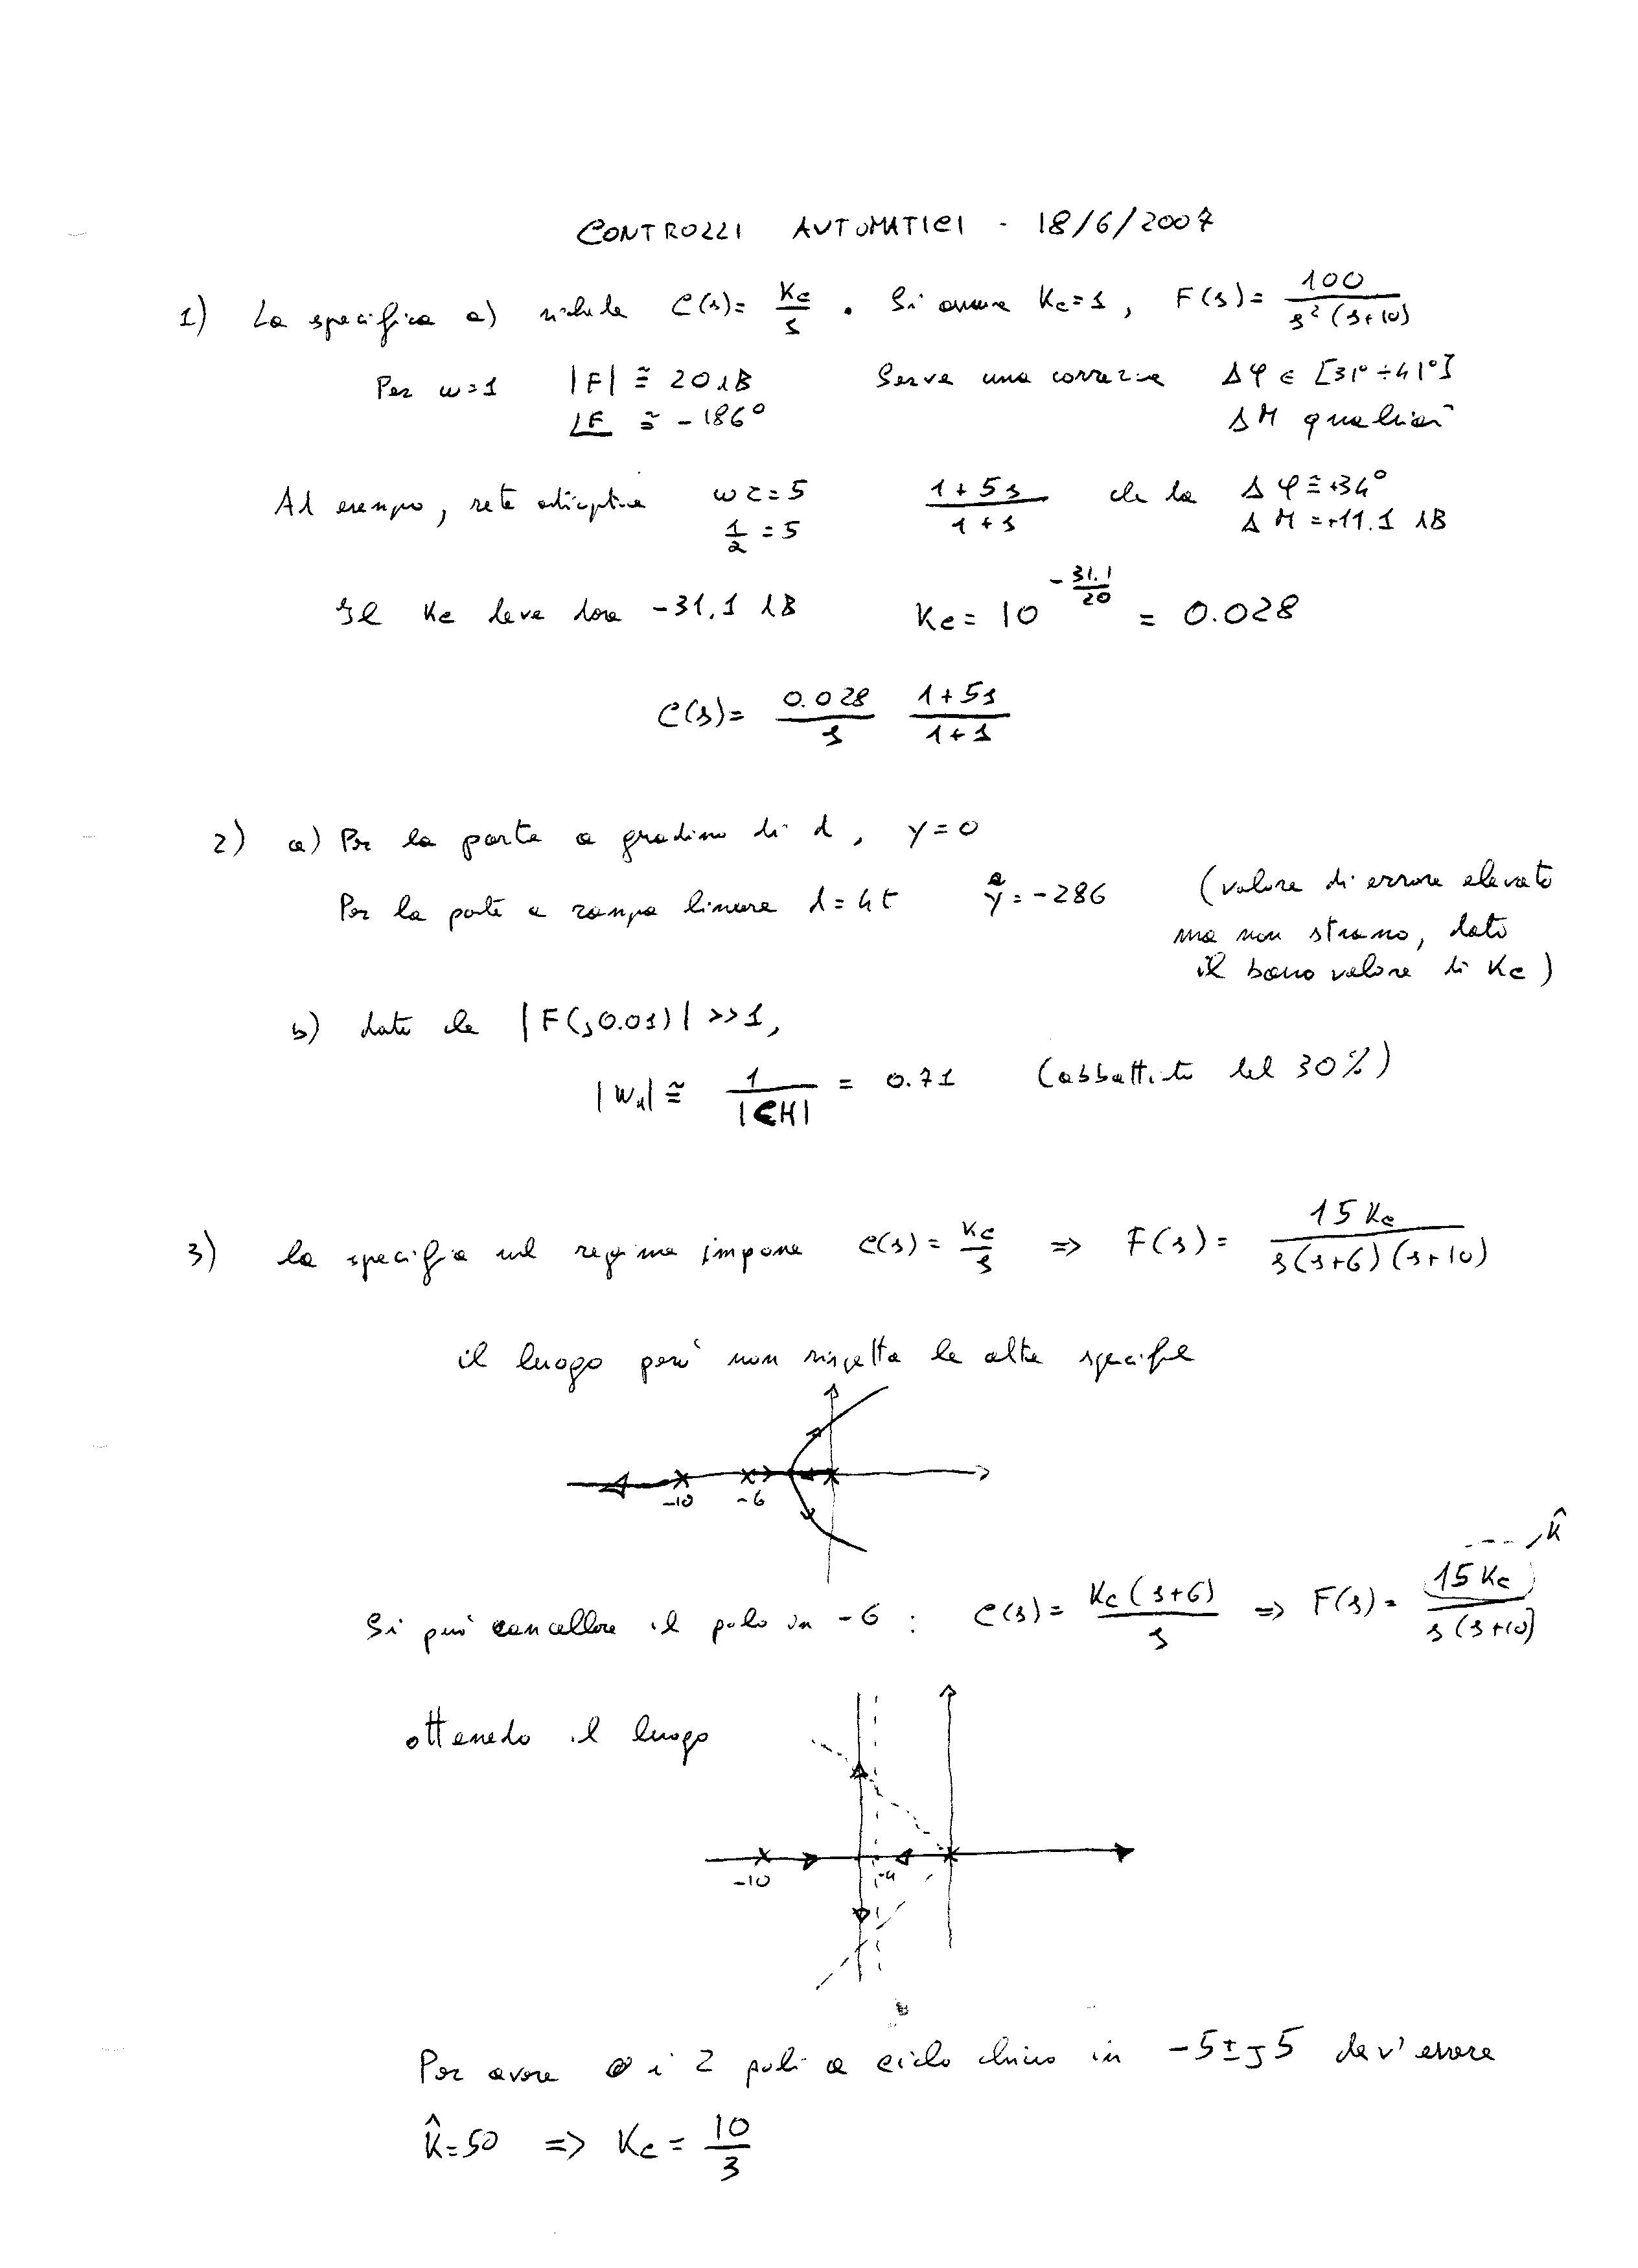 CONTROLLI AUTOMATICI - 18/6/2007
1) La specifica a) richiede C(s) = Kc/s . Si assume Kc=1, F(s) = 100/(s²(s+10))
Per ω=1 |F| ≅ 20 dB Serve una correzione Δφ ∈ [31° ÷ 41°]
∠F ≅ -186° ΔM qualsiasi
Ad esempio, rete anticipatrice ωτ=5 (1+5s)/(1+s) che dà Δφ ≅ +34°
1/a = 5 ΔM = +11.1 dB
Il Kc deve dare -31.1 dB Kc = 10^(-31.1/20) = 0.028
C(s) = 0.028/s (1+5s)/(1+s)
2) a) Per la parte a gradino di d, y=0
Per la parte a rampa lineare d=4t ỹ = -286 (valore di errore elevato
ma non strano, dato
il basso valore di Kc)
b) dato che |F(j0.01)| >> 1,
|Wd| ≅ 1/|CH| = 0.71 (abbattuto del 30%)
3) la specifica sul regime impone C(s) = Kc/s ⇒ F(s) = 15Kc/(s(s+6)(s+10))
il luogo però non rispetta le altre specifiche
-10 -6
K̂
Si può cancellare il polo in -6 : C(s) = Kc(s+6)/s ⇒ F(s) = 15Kc/(s(s+10))
ottenendo il luogo
-10 -4
Per avere i 2 poli a ciclo chiuso in -5±j5 dev'essere
K̂=50 ⇒ Kc = 10/3